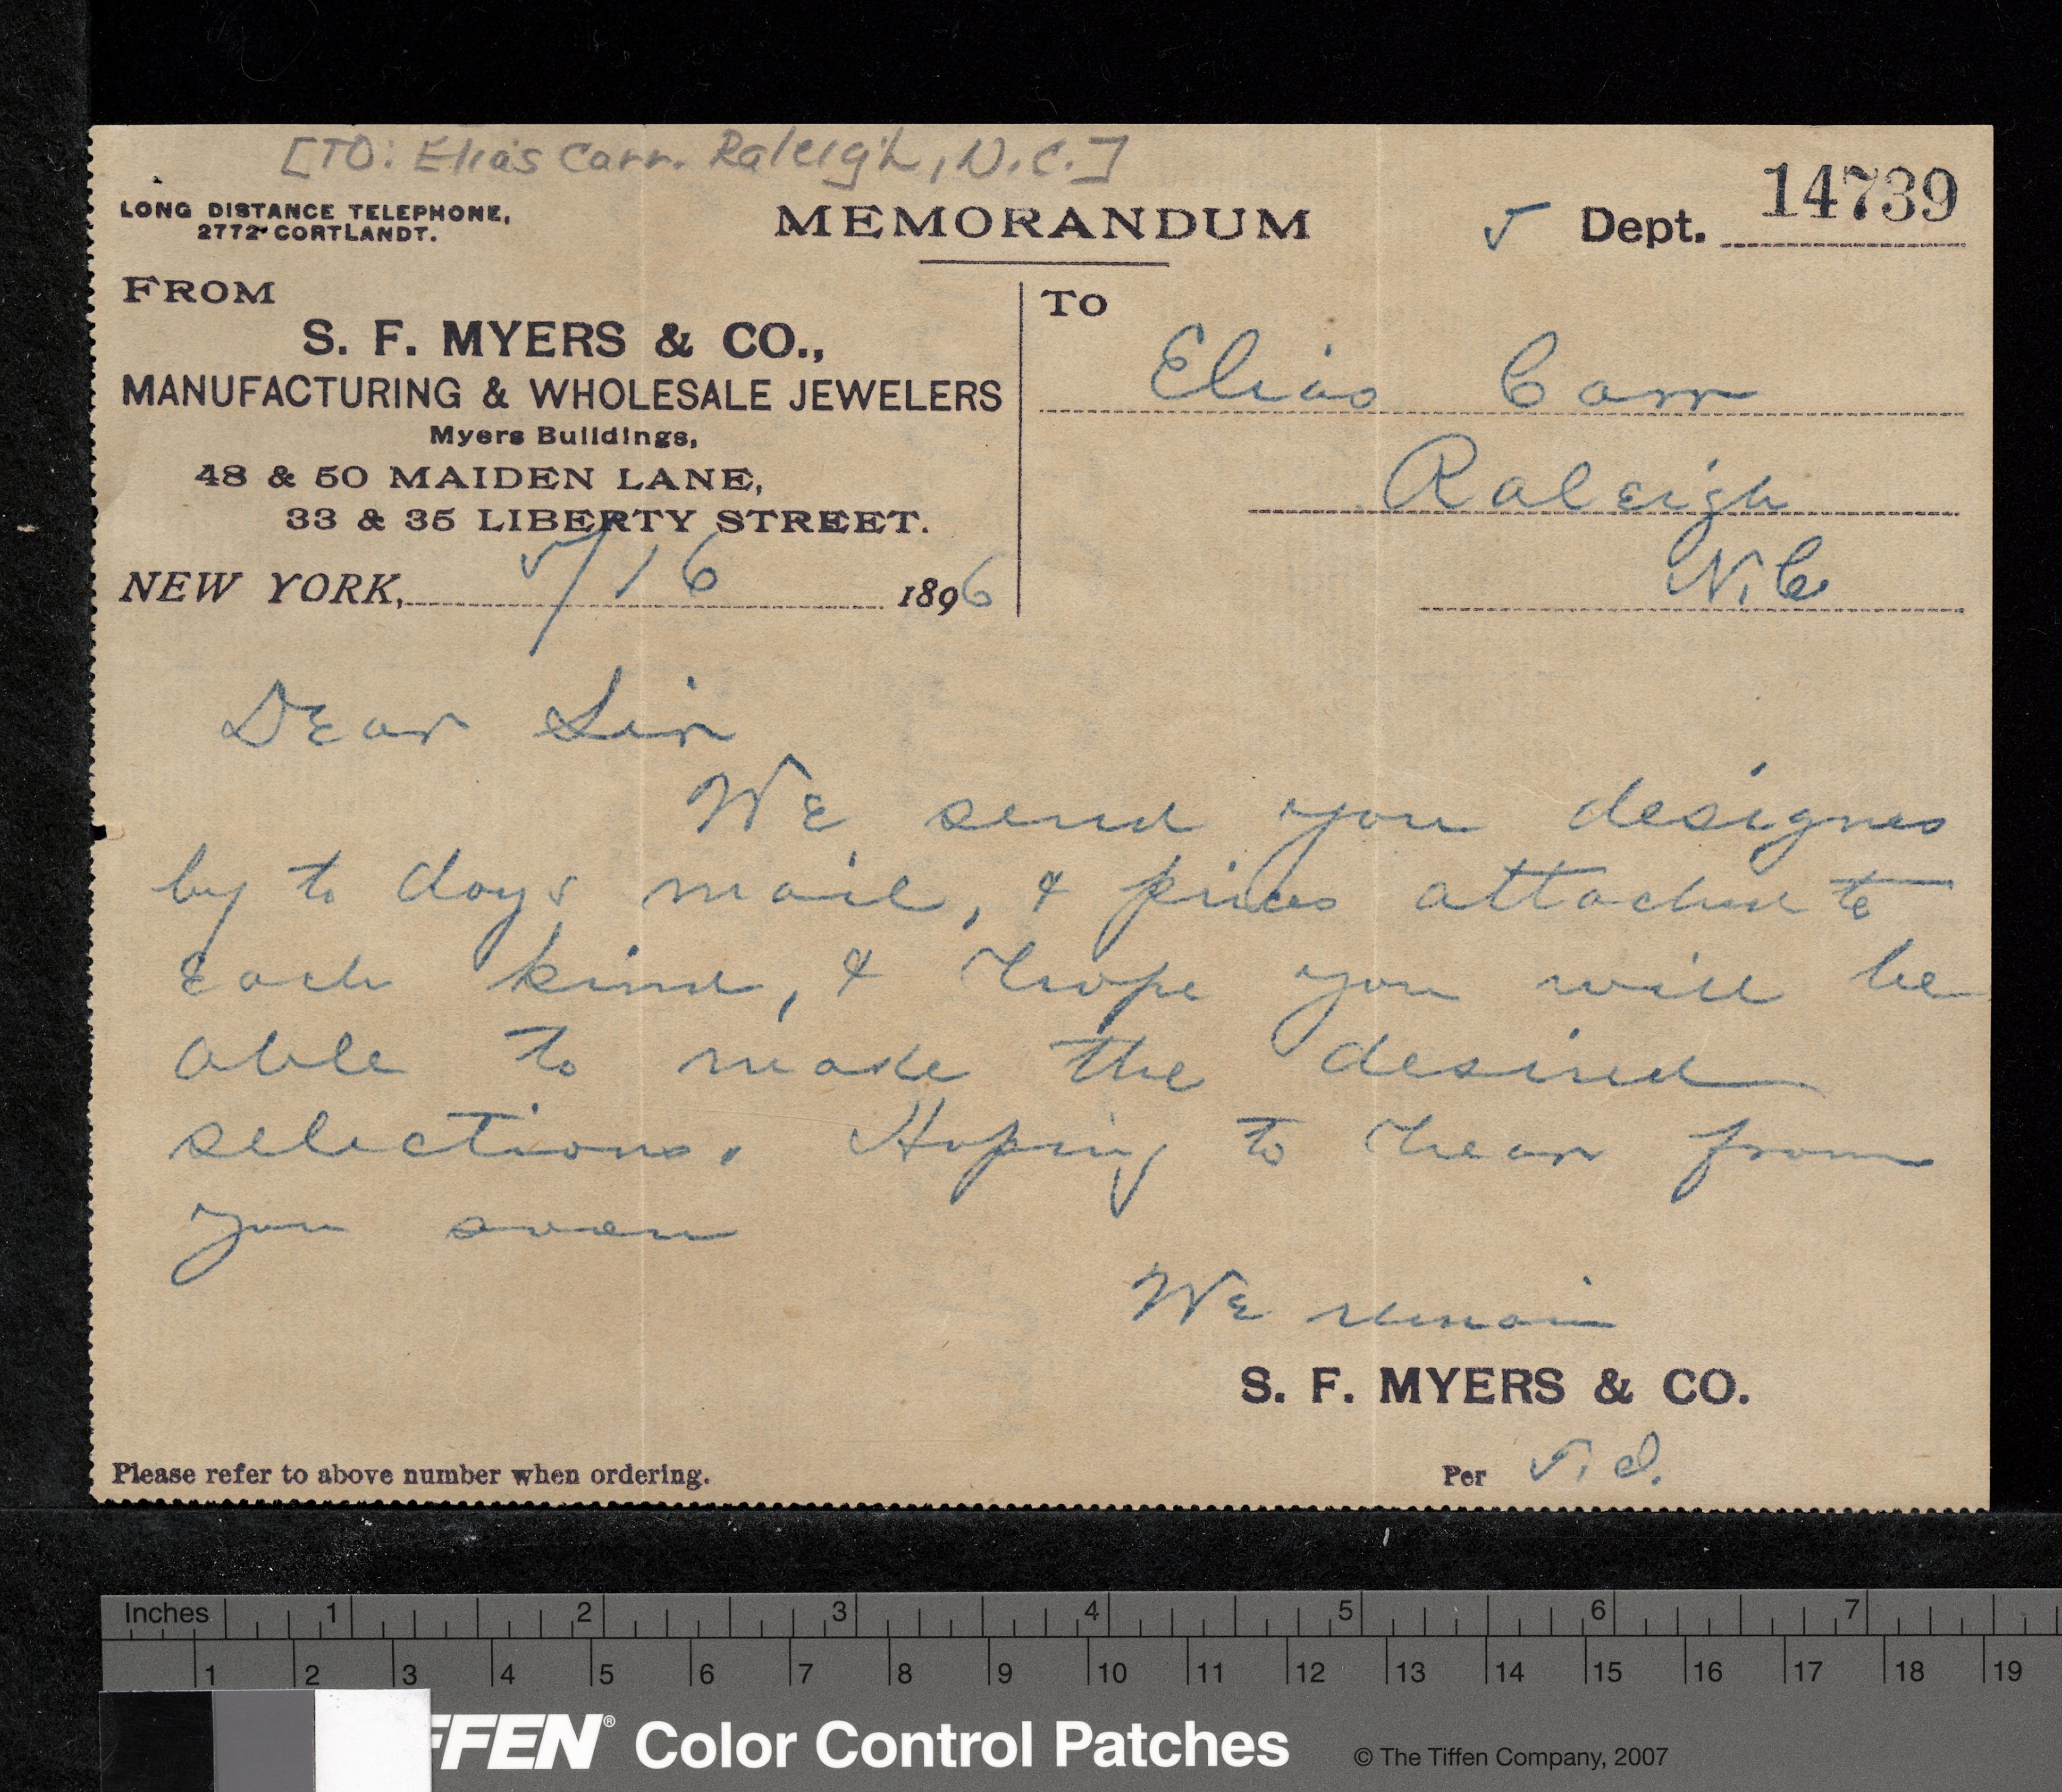 [TO: Elias Carr. Raleigh, N.C.]
LONG DISTANCE TELEPHONE,
2772 CORTLANDT.
MEMORANDUM
5 Dept. 14739
FROM
S. F. MYERS & CO.,
MANUFACTURING & WHOLESALE JEWELERS
Myers Buildings,
48 & 50 MAIDEN LANE,
33 & 35 LIBERTY STREET.
NEW YORK, 5/16 1896
TO
Elias Carr
Raleigh
N.C.
Dear Sir
We send you designs
by to days mail, & prices attached to
each kind, & hope you will be
able to make the desired
selections. Hoping to hear from
you soon
We remain
S. F. MYERS & CO.
Please refer to above number when ordering.
Per
Inches 1 2 3 4 5 6 7
1 2 3 4 5 6 7 8 9 10 11 12 13 14 15 16 17 18 19
FFEN® Color Control Patches © The Tiffen Company, 2007